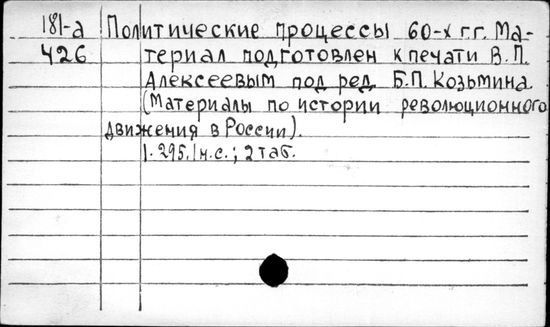 181-а Политические процессы 60-х г.г. Ма-
426 териал подготовлен к печати В.П.
Алексеевым под ред. Б.П. Козьмина.
(Материалы по истории революционного
движения в России).
1. 295. 1 н.с.; 2 таб.